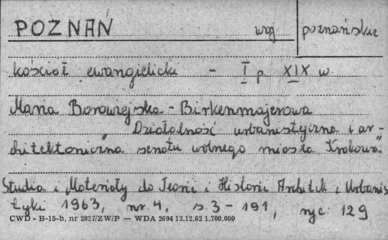 POZNAŃ woj poznańskie
kościoł ewangielicki - I p XIX w.
Maria Borowiejska-Birkenmajerowa
"Działalność urbanistyczna i ar-
chitektoniczna senatu wolnego miasta Krakowa"
Studia i Materiały do Teorii i Historii Archytek i Urbanis
tyki 1963, nr. 4, s. 3-191, ryc 129
CWD - B-15-b, nr 2827/ZW/P — WDA 2694 13.12.62 1.700.000